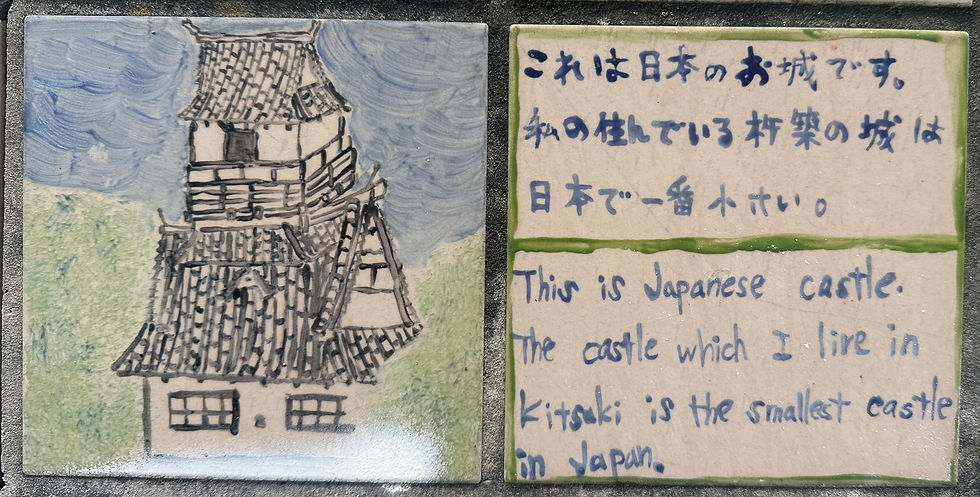 これは日本のお城です。
私の住んでいる杵築の城は
日本で一番小さい。
This is Japanese castle.
The castle which I live in
Kitsuki is the smallest castle
in Japan.